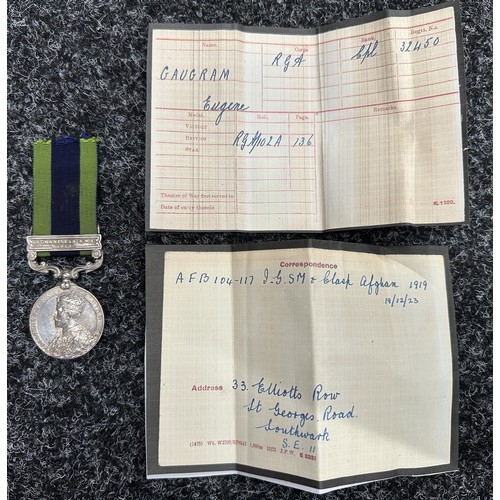 Name.
Corps
Rank.
Regtl. No.
GAUGRAM
RGA
Cpl
32450
Eugene
Medal.
Roll.
Page.
Remarks.
Victory
British
RGA/102A
136
Star
Theatre of War first served in
Date of entry therein
K. 1380.
Correspondence
AFB 104-117 I.G.SM & Clasp Afghan 1919
19/12/23
Address
33. Elliotts Row
St Georges. Road.
Southwark
S.E. 11